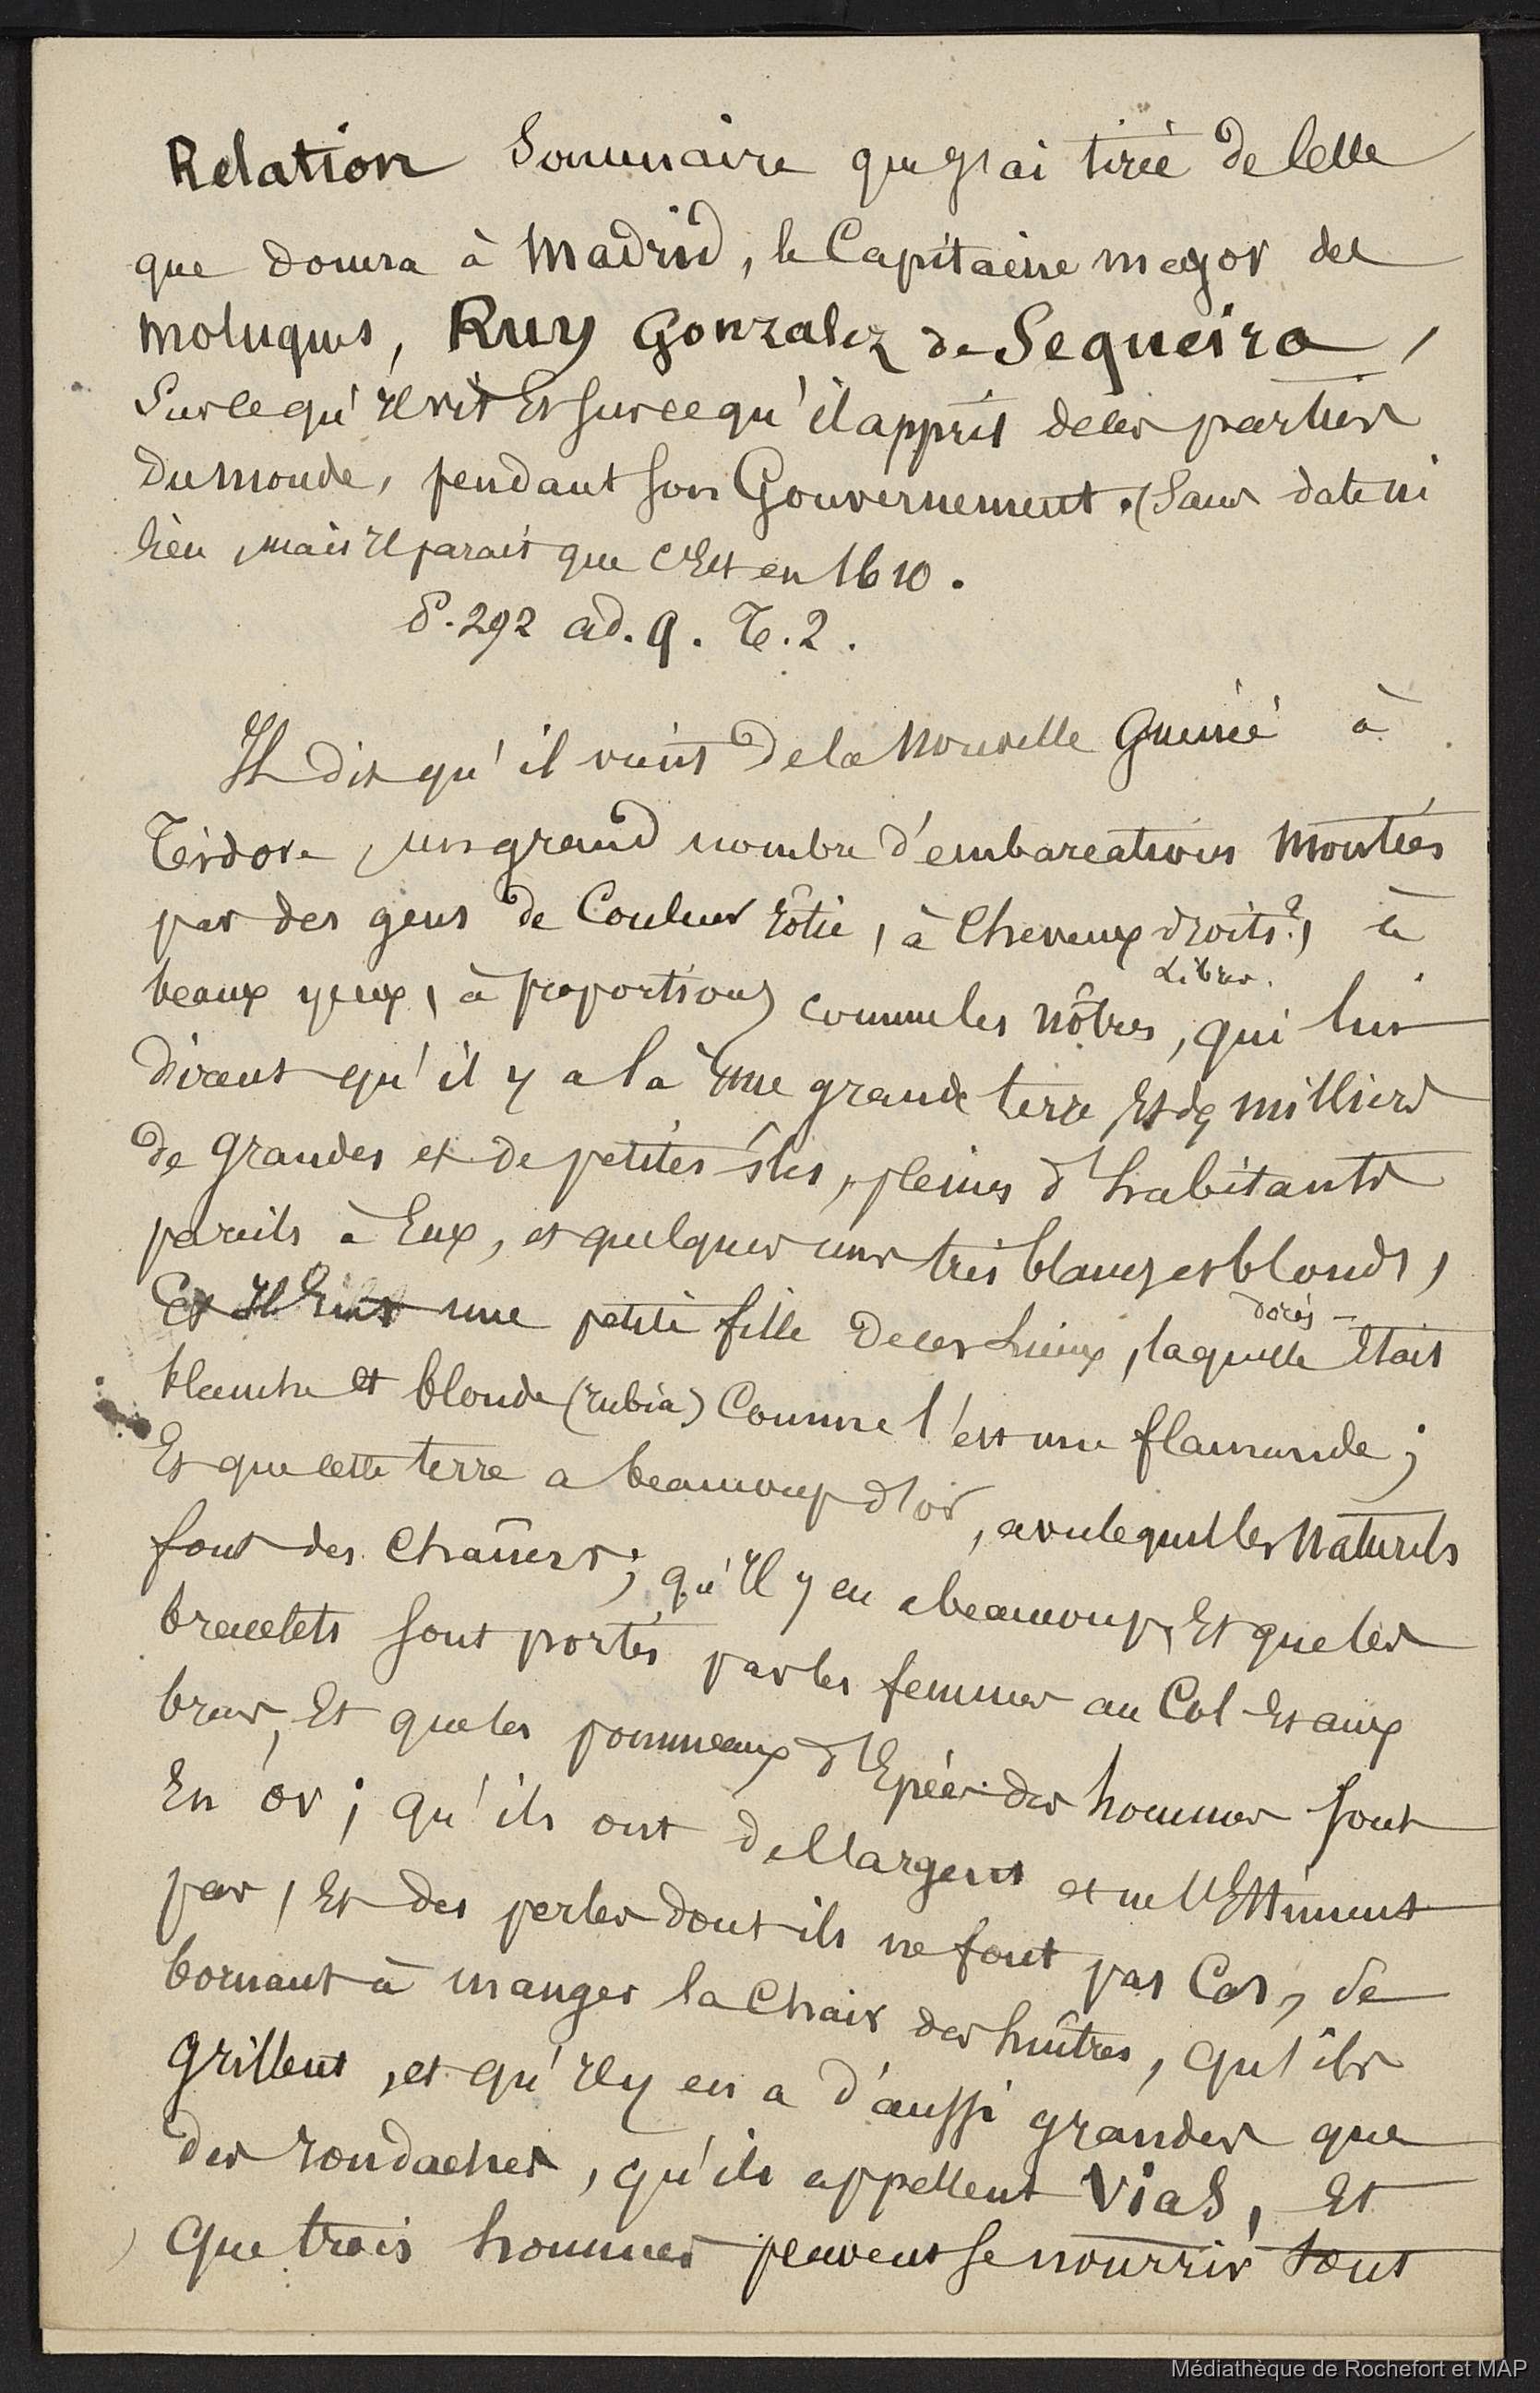 Relation Sommaire que j'ai tirée de Celle
que donna à Madrid, le Capitaine mayor des
Moluques, Ruy Gonzalez de Sequeira,
Sur ce qu'Il vit Et sur ce qu'il apprit de ces parties
du monde, pendant son Gouvernement. (Sans date ni
lieu, mais Il parait que c'Est en 1610.
P. 292 ad. 9. T. 2.
Il dit qu'il vient de la Nouvelle Guinée à
Tidore, un grand nombre d'embarcations Montées
par des gens de Couleur rôtie, à Cheveux droits?, à
Libres.
beaux yeux, à proportions comme les nôtres, qui lui
dirent qu'il y a là Une grande terre Et des milliers
de Grandes et de petites îles, pleines d'habitants
pareils à Eux, et quelques uns très blancs et blonds,
dorés
Et Il Eut une petite fille de ces Lieux, laquelle Etait
blanche et blonde (rubia) Comme l'est une flamande;
Et que cette terre a beaucoup d'or, avec lequel les Naturels
font des Chaînes; qu'Il y en a beaucoup, Et que les
bracelets sont portés par les femmes au Col Et aux
bras, Et que les pommeaux d'Epées des hommes sont
En or; qu'ils ont de l'argent et ne l'Estiment
pas, Et des perles dont ils ne font pas Cas, se
bornant à manger la Chair des huîtres, qu'ils
Grillent, et qu'Il y en a d'aussi grandes que
des rondaches, qu'ils appellent Vias, Et
Que trois hommes peuvent se nourrir tout
Médiathèque de Rochefort et MAP